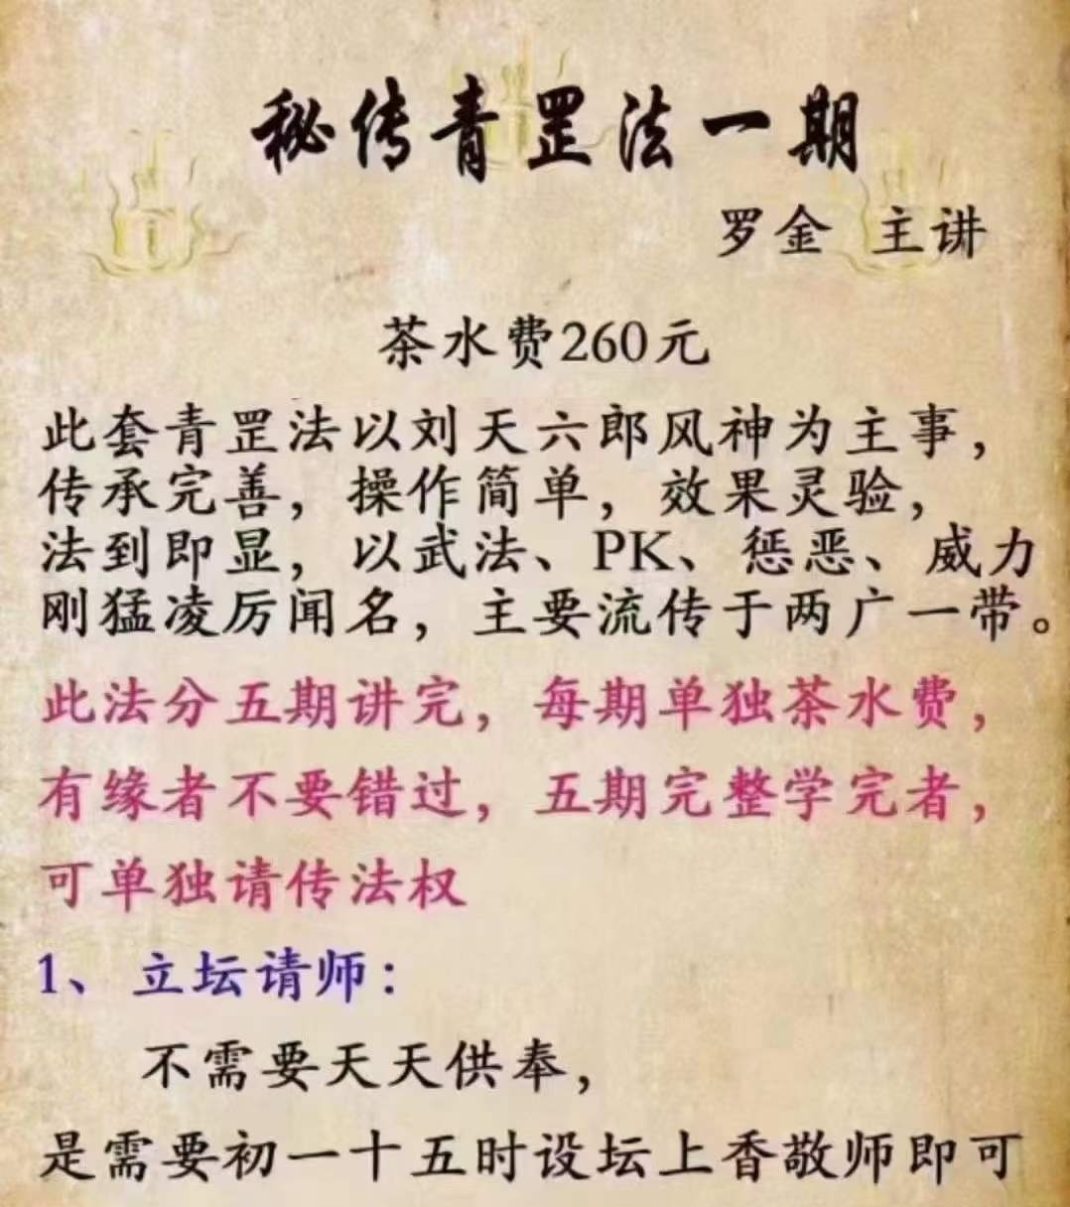 秘传青罡法一期
罗金 主讲
茶水费260元
此套青罡法以刘天六郎风神为主事，
传承完善，操作简单，效果灵验，
法到即显，以武法、PK、惩恶、威力
刚猛凌厉闻名，主要流传于两广一带。
此法分五期讲完，每期单独茶水费，
有缘者不要错过，五期完整学完者，
可单独请传法权
1、立坛请师：
不需要天天供奉，
是需要初一十五时设坛上香敬师即可